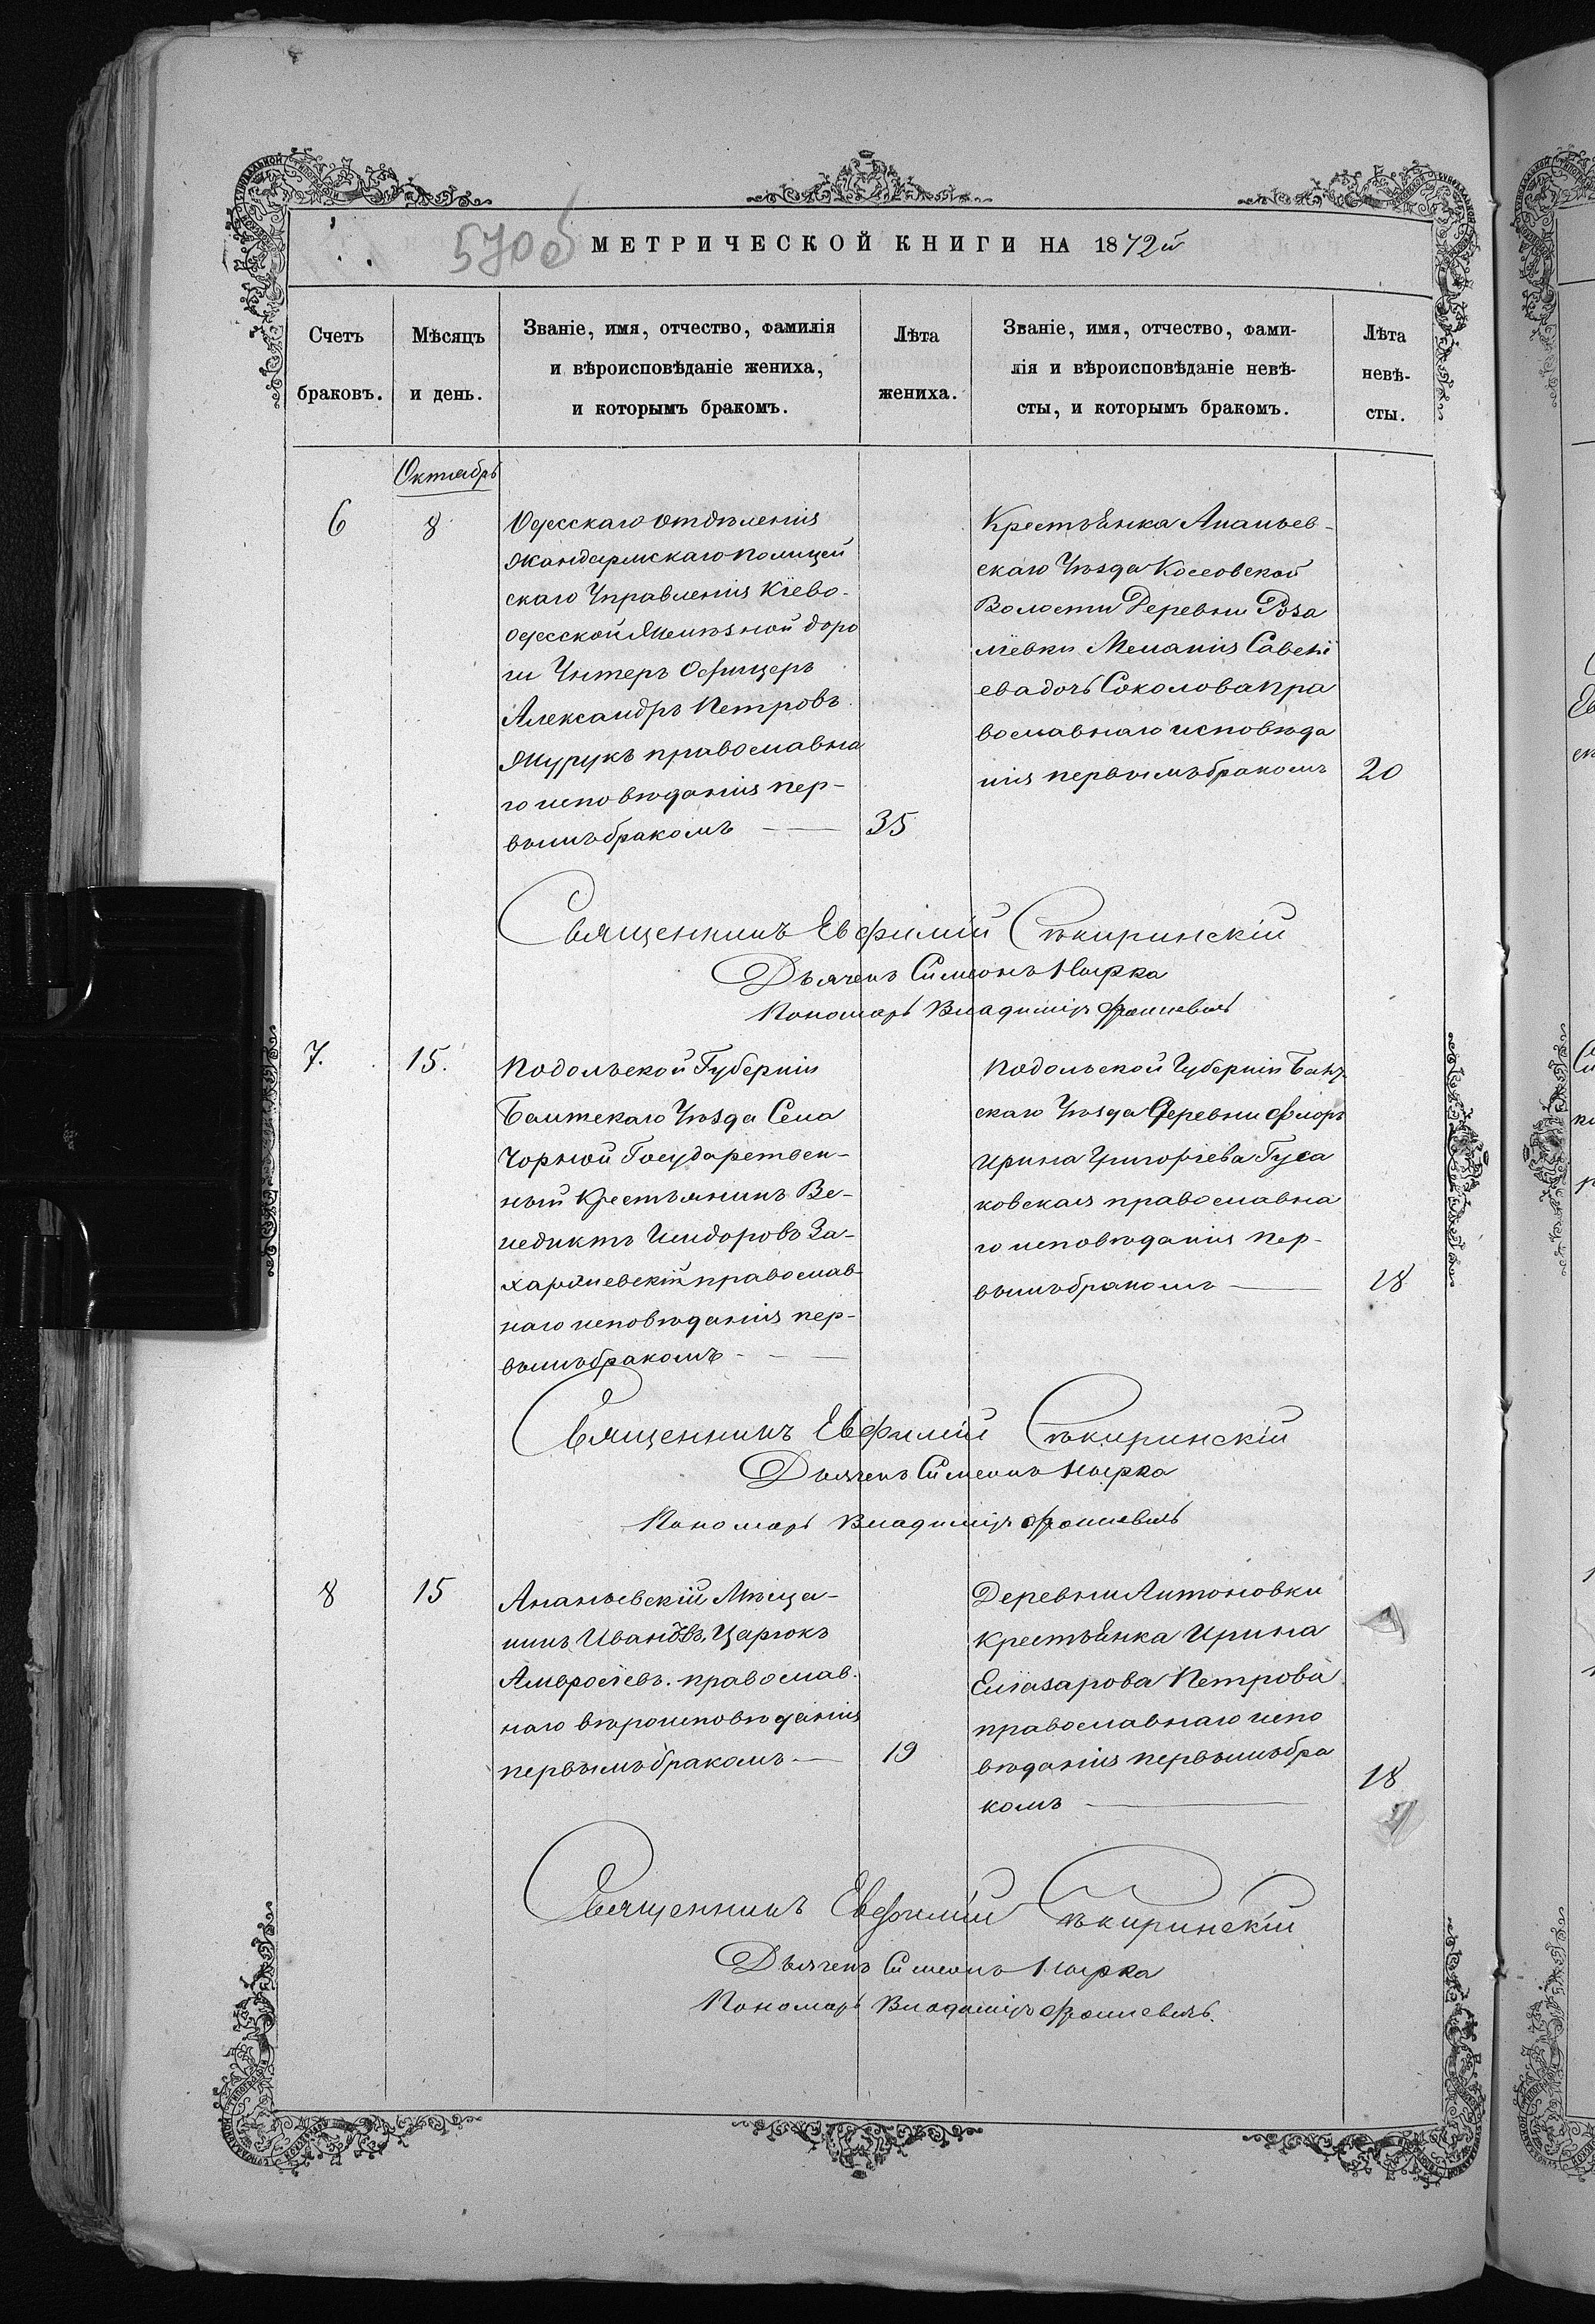 570об
МЕТРИЧЕСКОЙ КНИГИ НА 1872й
Счетъ браковъ.
Мѣсяцъ и день.
Званіе, имя, отчество, фамилія
и вѣроисповѣданіе жениха,
и которымъ бракомъ.
Лѣта жениха.
Званіе, имя, отчество, фами-
лія и вѣроисповѣданіе невѣ-
сты, и которымъ бракомъ.
Лѣта невѣ-
сты.
Октябрь
6
8
Одесскаго отдѣленія
жандармскаго полицей
скаго Управленія Кіево-
одесской Желѣзной доро
ги Унтеръ Офицеръ
Александръ Петровъ
Журукъ православна
го исповѣданія пер-
вымъ бракомъ
35
Крестьянка Ананьев-
скаго Уѣзда Косовской
Волости Деревни Роза
ліевки Меланія Савелі
ева дочь Соколова пра
вославнаго исповѣда
нія первымъ бракомъ
20
Священникъ Евфимій Сѣкиринскій
Дьячекъ Симеонъ
Пономарь Владимиръ
7.
15.
Подольской Губерніи
Балтскаго Уѣзда Села
Чорной Государствен-
ный Крестьянинъ Ве-
недиктъ Исидоровъ За-
харжевскій православ-
наго исповѣданія пер-
вымъ бракомъ
Подольской Губерніи Балт-
скаго Уѣзда Деревни Флоръ
Ирина Григорьева Гуса
ковская православна
го исповѣданія пер-
вымъ бракомъ
18
Священникъ Евфимій Сѣкиринскій
Дьячекъ Симеонъ
Пономарь Владимиръ
8
15
Ананьевскій Мѣща-
нинъ Ивановъ Царюкъ
Амвросіевъ. православ-
наго вѣроисповѣданія
первымъ бракомъ
19
Деревни Антоновки
крестьянка Ирина
Еліазарова Петрова
православнаго испо
вѣданія первымъ бра
комъ
18
Священникъ Евфимій Сѣкиринскій
Дьячекъ Симеонъ
Пономарь Владимиръ